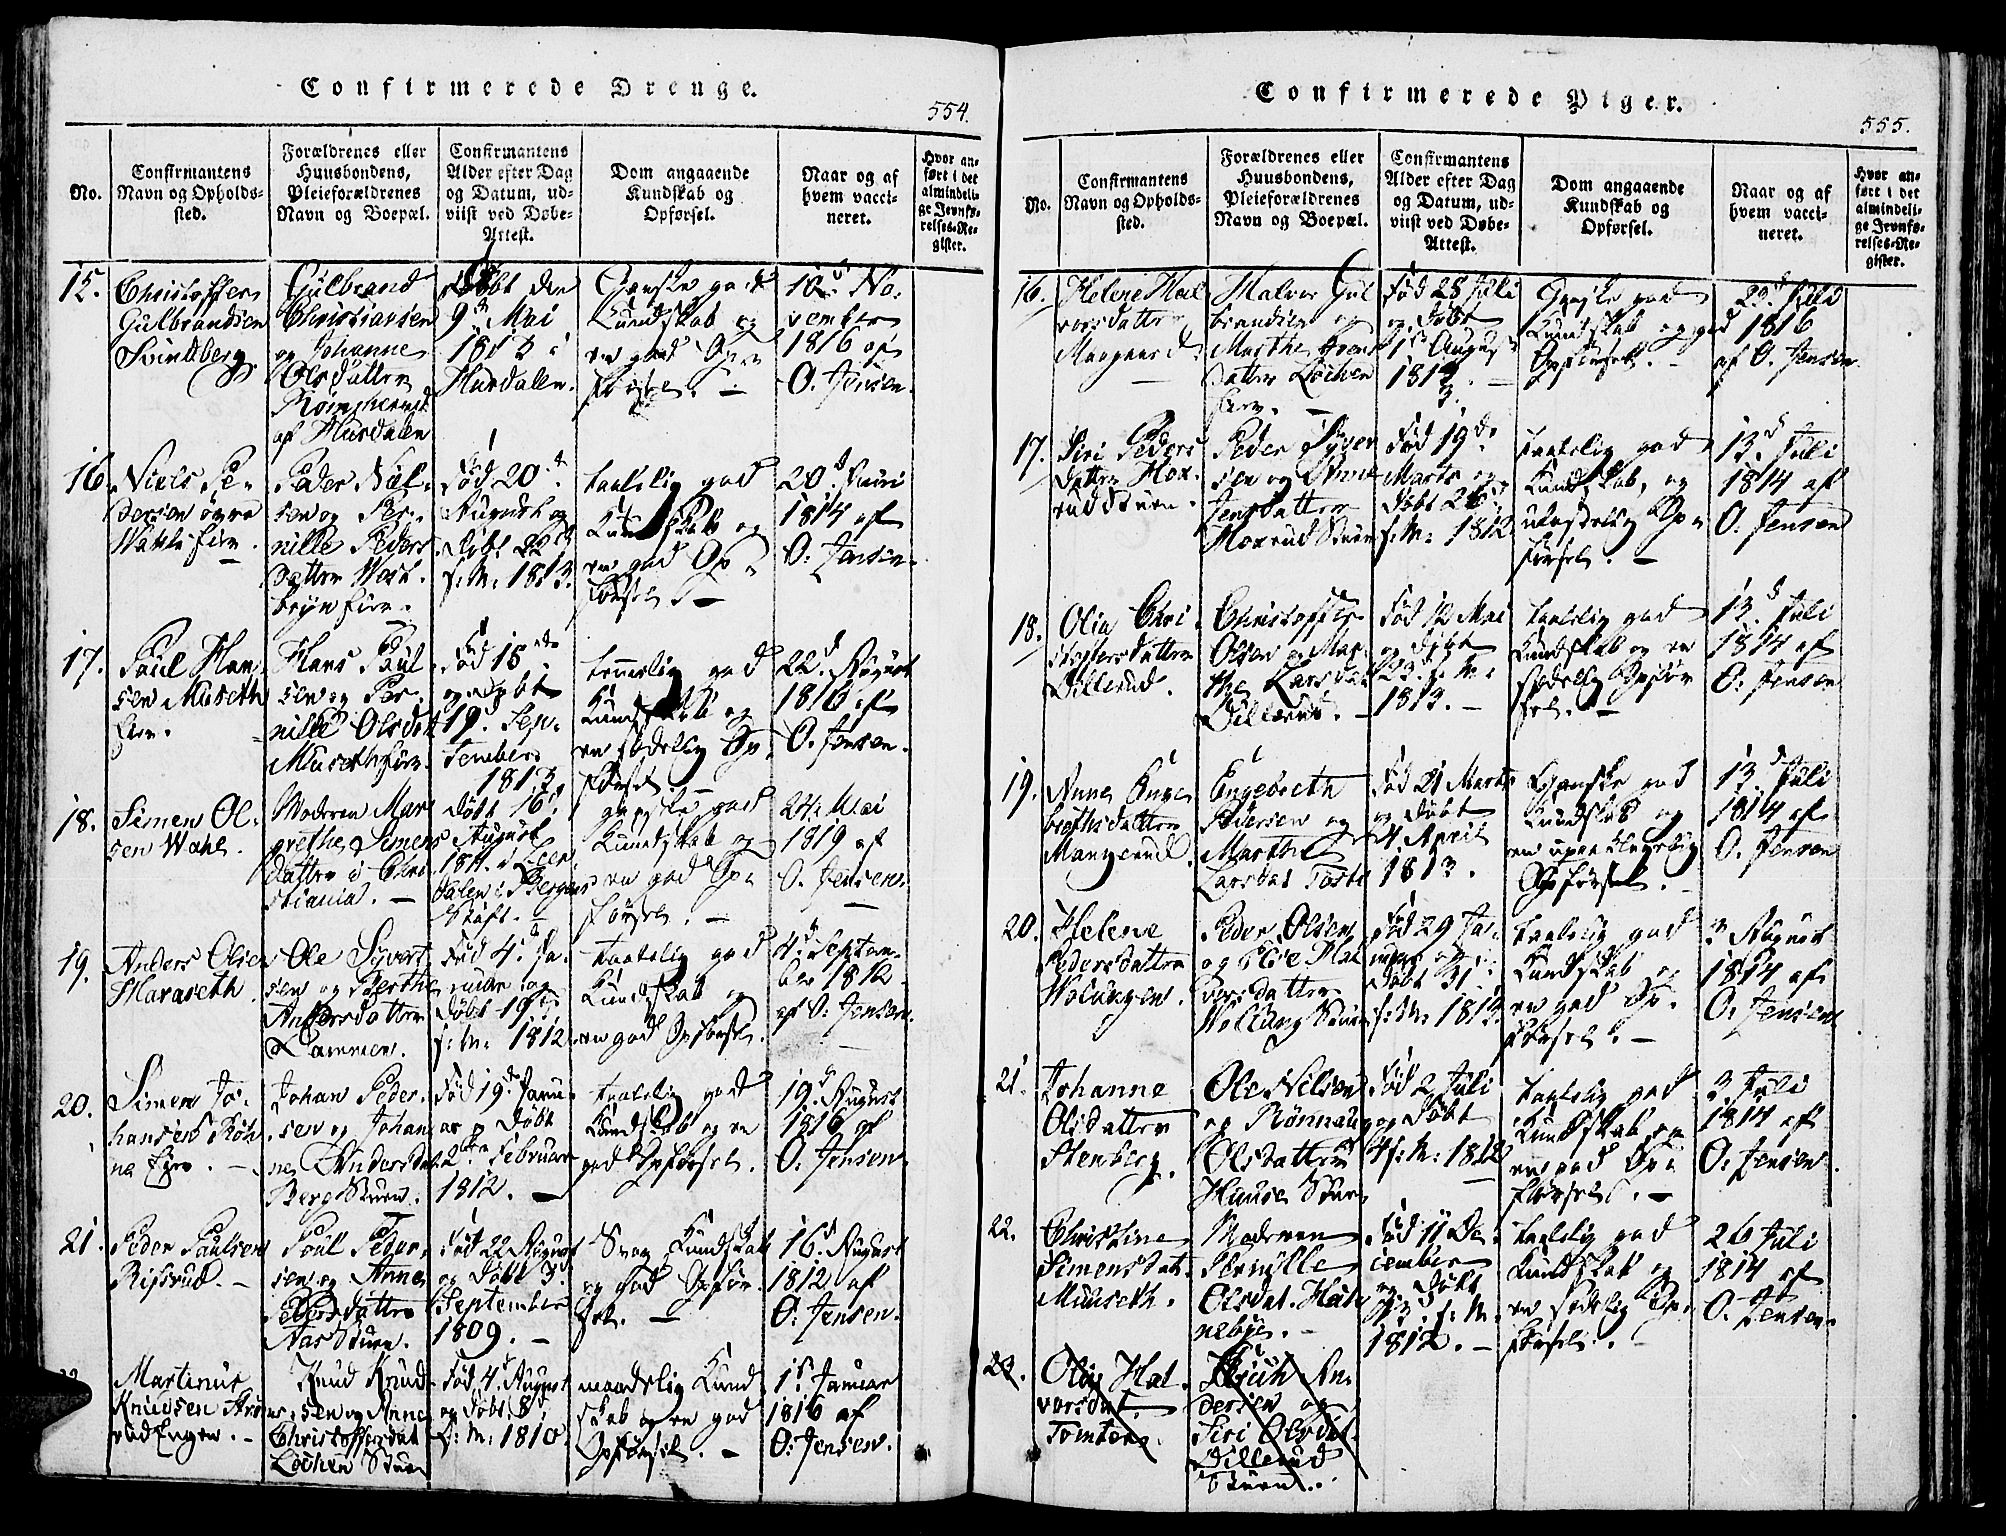 Confirmerede Drenge.
554.
No.
Confirmantens
Navn og Opholds-
sted.
Forældrenes eller
Huusbondens,
Pleieforældrenes
Navn og Boepæl.
Confirmantens
Alder efter Dag
og Datum, ud-
viist ved Døbe-
Attest.
Dom angaaende
Kundskab og
Opførsel.
Naar og af
hvem vacci-
neret.
Hvor an-
ført i det
almindeli-
ge Jevnfø-
relses-Re-
gister.
15.
Christoffer
Gulbrandsen
Svindberg
Gulbrand
Christiansen
og Johanne
Olsdatter
af Hurdalen
Døbt den
9de Mai
1813 i
Hurdalen.
Ganske god
Kundskab og
en god Op-
førsel. –
10d No-
vember
1816 af
O. Jensen.
16
Niels Pe-
dersen øvre
Peder Niel-
sen og Per-
nille Peders
datter
Fød 20de
August og
Døbt 22de
s: M: 1813.
taalelig god
Kundskab og
en god Op-
førsel. –
20d Juni
1814 af
O: Jensen.
17.
Paul Han
sen Museth
Eier.
Hans Paul
sen og Per-
nille Olsdat
Musetheier.
Fød 15de
og døbt
19d Sep-
tember
1813.
temmelig god
Kundskab og
en sædelig Op-
førsel. –
22d August
1816 af
O. Jensen.
18.
Simen Ol-
sen Wahl.
Moderen Mar
grethe Simens
datter i Chri
stiania. –
Døbt 16d
August
1811. i Leer
dalen i Bergens
Stift. –
ganske god
Kundskab og
en god Op-
førsel. –
24. Mai
1819 af
O. Jensen.
19.
Anders Olsen
Haraseth.
Ole Syvert
sen og Berthe
Andersdatter
Lammen.
Fød 4d Ja-
nuar og
Døbt 19de
s: M: 1812
taalelig god
Kundskab og
en god Opførsel.
4d Septem-
ber 1812
af O. Jensen.
20.
Simen Jo-
hansen Røh
ne Eier. –
Johan Peder-
sen og Johan
ne Andersdat
Berg Stuen.
Fød 19de Janu-
ar og Døbt
2den Februar
1812. –
taalelig god
Kundskab og en
god Opførsel.
19d August
1816 af
O. Jensen.
21.
Peder Paulsen
Risrud. –
Poul Peder-
sen og Anne
Pedersdatter
Aas Stuen.
Fød 22 August
og Døbt 3d
September
1809. –
Svag Kundskab
og god Opfør-
sel. –
16d August
1812 af
O: Jensen.
Martinus
Knudsen
rud Engen. –
Knud Knud-
sen og Anne
Christoffersdat
Løchen Stuen
Fød 4d August
og døbt 8d
s: M: 1810.
maadelig Kund
skab og en god
Opførsel. –
1d Januar
1816 af
O: Jensen.
Confirmerede Piger.
555.
No.
Confirmantens
Navn og Opholds-
sted.
Forældrenes eller
Huusbondens,
Pleieforældrenes
Navn og Boepæl.
Confirmantens
Alder efter Dag
og Datum, ud-
viist ved Døbe-
Attest.
Dom angaaende
Kundskab og
Opførsel.
Naar og af
hvem vacci-
neret.
Hvor an-
ført i det
almindeli-
ge Jevnfø-
relses-Re-
gister.
16.
Helene Hal
vorsdatter
Halvor Gul
brandsen og
Marthe Ivers
datter Løchen
Eier. –
Fød 28 Juli
og Døbt
1d August
1813. –
Ganske god
Kundskab og god
Opførsel. –
23d Juli
1816
af O. Jensen.
17.
Siri Peders
datter Hox-
rud Stuen.
Peder Syver
sen og Anne
Jensdatter
Hoxrud Stuen
Fød 19de
Marts og
døbt 26de
s: M: 1812
taalelig god
Kundskab, og
ulastelig Op-
førsel. –
13d Juli
1814 af
O. Jensen
18.
Olia Chri-
stoffersdatter
Dillerud.
Christoffer
Olsen og Mar-
the Larsdat
Dillerud. –
Fød 12 Mai
og døbt
23d s. M:
1813. –
taalelig god
Kundskab og en
sædelig Opfør
sel. –
13d Juli
1814 af
O: Jensen
19.
Anne Enge-
brethsdatter
Mangerud.
Engebreth
Pedersen og
Marthe
Larsdat
Fød 21 Marts
og døbt
4 April
1813.
Ganske god
Kundskab og
en upaaklagelig
Opførsel. –
13d Juli
1814 af
O. Jensen
20.
Helene
Pedersdatter
Holungen.
Peder Olsen
og Else Hal
vorsdatter
Hollung Stuen
Fød 29 Ja-
nuar og
Døbt 31
s: M: 1813.
taalelig god
Kundskab og
en god Op-
førsel. –
3 August
1814 af
O. Jensen
21.
Johanne
Olsdatter
Stenberg.
Ole Nilsen
og Rønnaug
Olsdatter
Hause Stuen
Fød 2 Juli
og Døbt
4 s: M: 1812
taalelig god
Kundskab og
en god Op-
førsel. –
3 Juli
1814 af
O. Jensen.
22.
Christine
Simensdat.
Muuseth.
Moderen
Pernille
Olsdat. Hån
nebye. –
Fød 11 De-
cember
og Døbt
13 s: M:
1812. –
taalelig god
Kundskab og
en sædelig Op-
førsel. –
26 Juli
1814 af
O. Jensen.
23.
Olia Hal-
vorsdat.
An-
dersen og
Siri Olsdat.
Dillerud
Stuen.